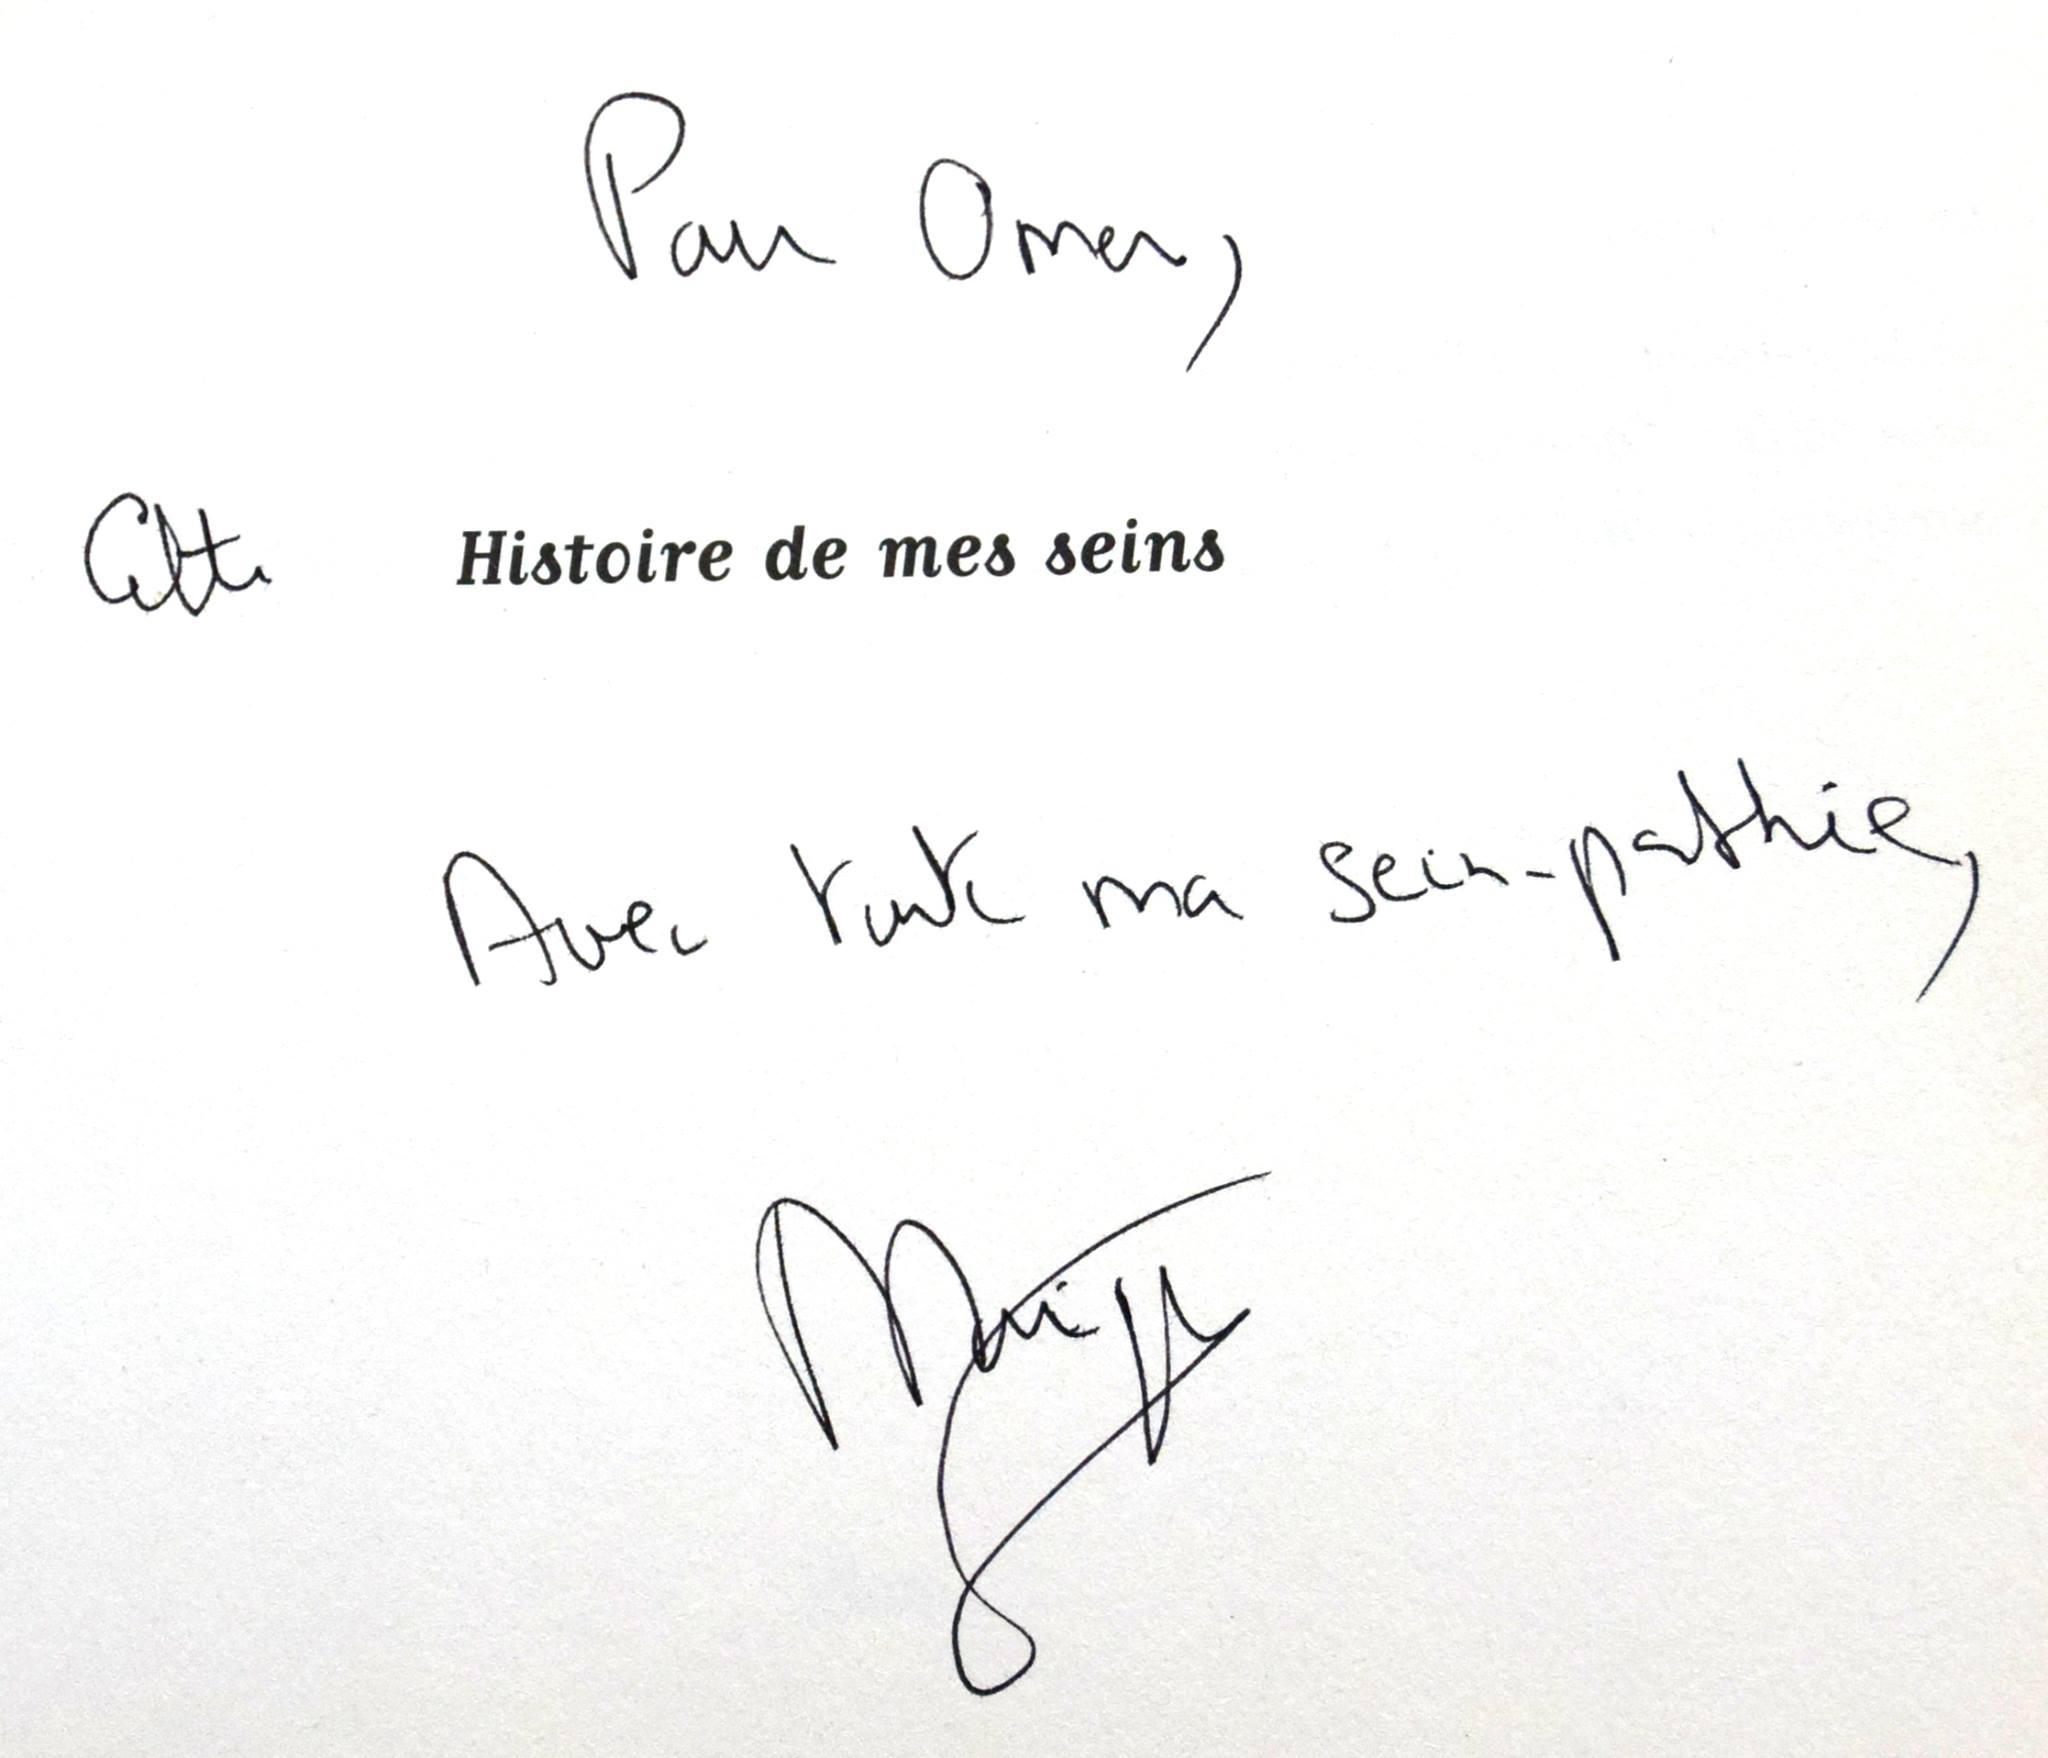 Pour Omer,
Cette Histoire de mes seins
Avec toute ma sein-pathie,